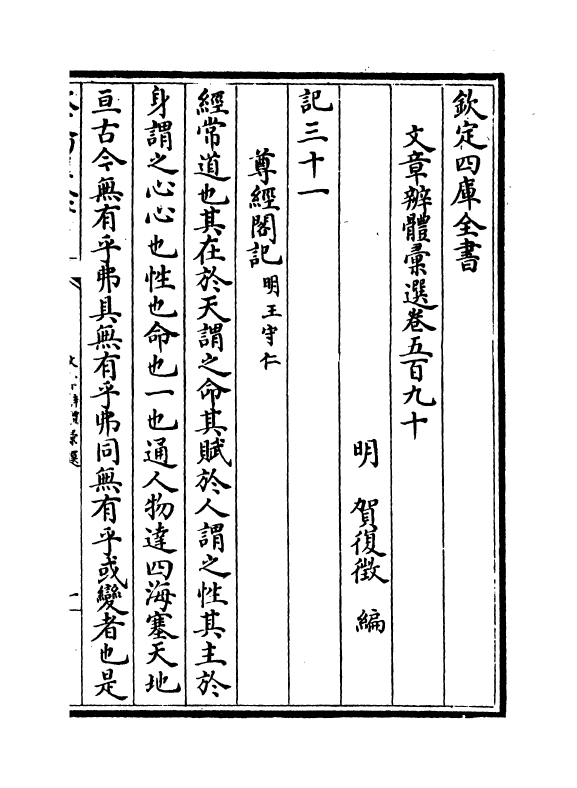 欽定四庫全書
文章辨體彙選卷五百九十
明 賀復徵 編
記三十一
尊經閣記 明王守仁
經常道也其在於天謂之命其賦於人謂之性其主於
身謂之心心也性也命也一也通人物達四海塞天地
亘古今無有乎弗具無有乎弗同無有乎或變者也是